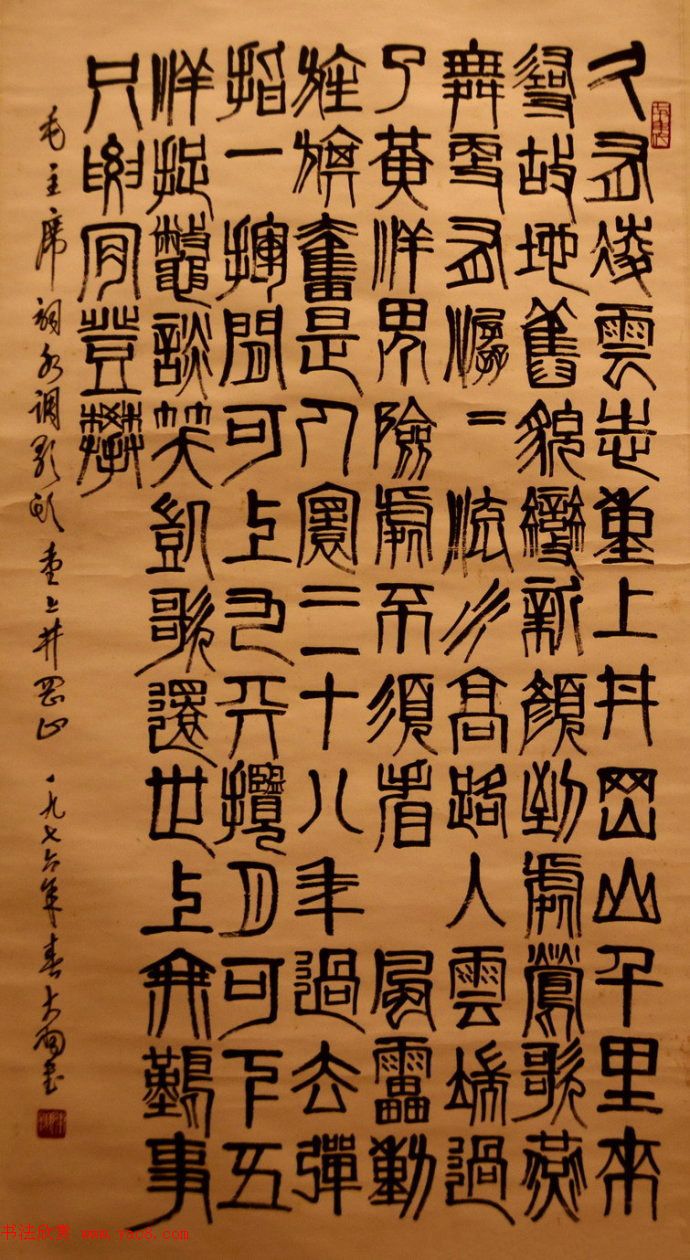 久有凌雲志重上井岡山千里來
尋故地舊貌變新顏到處鶯歌燕
舞更有潺〻流水高路入雲端過
了黃洋界險處不須看 風雷動
旌旗奮是人寰三十八年過去彈
指一揮間可上九天攬月可下五
洋捉鱉談笑凱歌還世上無難事
只要肯登攀
毛主席詞水调歌頭 重上井岡山 一九七六年春大书
书法欣赏 www.yac8.com